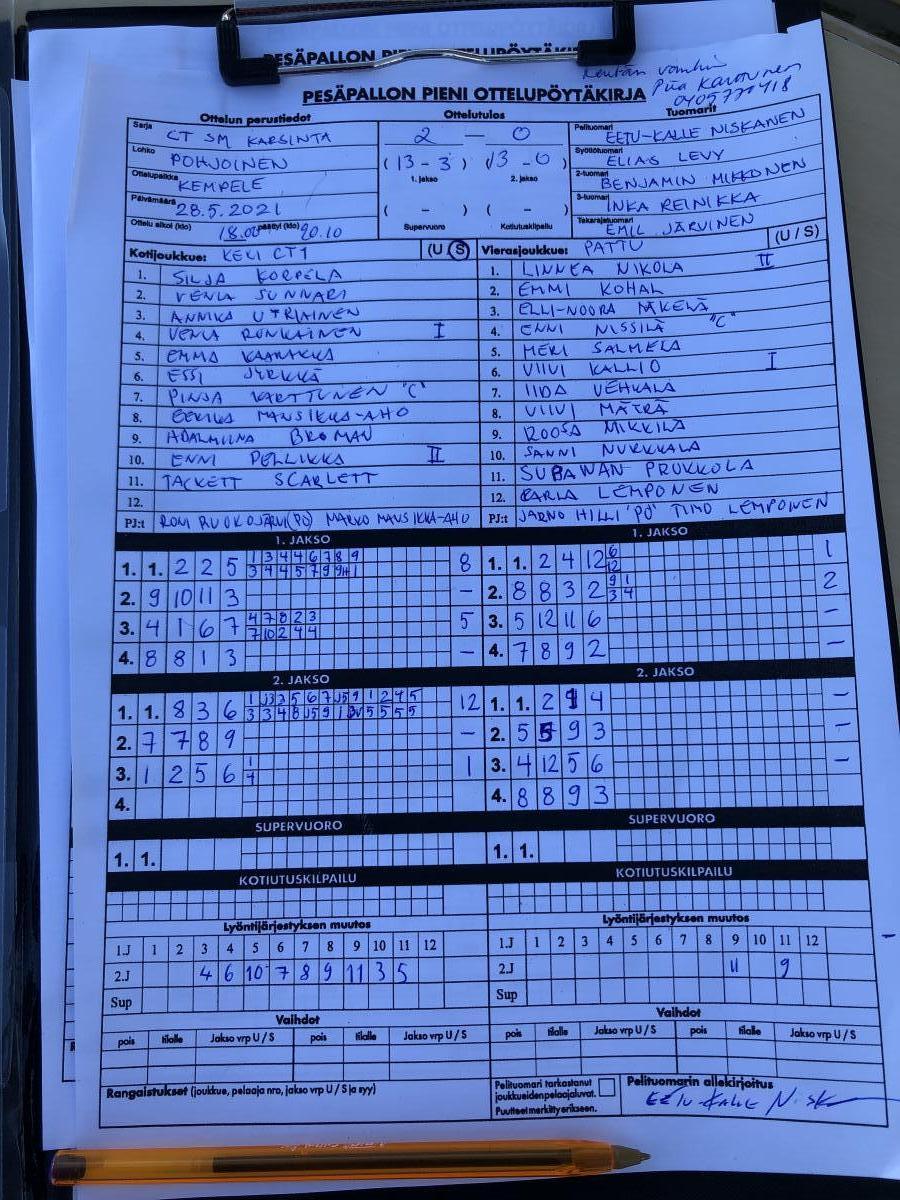 PESÄPALLON PIENI OTTELUPÖYTÄKIRJA
Piia Karttunen
0405770418
Ottelun perustiedot Ottelutulos Tuomarit
Sarja CT SM KARSINTA 2 – 0 Pelituomari EETU-KALLE NISKANEN
Lohko POHJOINEN (13 - 3) (13 - 0) Syöttötuomari ELIAS LEVY
Ottelupaikka KEMPELE 1. jakso 2. jakso 2-tuomari BENJAMIN MIKKONEN
Päivämäärä 28.5.2021 3-tuomari INKA REINIKKA
Ottelu alkoi (klo) 18.00 päättyi (klo) 20.10 ( - ) ( - ) Supervuoro Kotiutuskilpailu Takarajatuomari EMIL JÄRVINEN
Kotijoukkue: KEKI CT1 (U / S) Vierasjoukkue: PATTU (U / S)
1. SILJA KORPELA 1. LINNEA NIKOLA II
2. VENLA SUNNARI 2. EMMI KOHAL
3. ANNIKA UTRIAINEN 3. ELLI-NOORA MÄKELÄ
4. VENLA RONKAINEN I 4. ENNI NISSILÄ "C"
5. EMMA KAARAKKA 5. MERI SALMELA
6. ESSI JYRKKÄ 6. VIIVI KALLIO I
7. PINJA KARTTUNEN "C" 7. IIDA VEHKALA
8. EERIKA MANSIKKA-AHO 8. VIIVI MÄTRÄ
9. ADALMIINA BROMAN 9. ROOSA MIKKILÄ
10. ENNI PELLIKKA II 10. SANNI NURKKALA
11. TACKETT SCARLETT 11. SUBAWAN PRUKKOLA
12. 12. KARLA LEMPONEN
PJ:t RONI RUOKOJÄRVI (PÖ) MARKO MANSIKKA-AHO PJ:t JARNO HILLI 'PÖ' TIMO LEMPONEN
1. JAKSO 1. JAKSO
1. 1. 2 2 5 1 3 4 4 6 7 8 9 8 1. 1. 2 4 12 6 1
3 4 4 5 7 9 11 1 12
2. 9 10 11 3 – 2. 8 8 3 2 9 1 2
3 4
3. 4 1 6 7 4 7 8 2 3 5 3. 5 12 11 6 –
7 10 2 4 4
4. 8 8 1 3 – 4. 7 8 9 2 –
2. JAKSO 2. JAKSO
1. 1. 8 3 6 12 1. 1. 2 9 4 –
2. 7 7 8 9 – 2. 5 5 9 3 –
3. 1 2 5 6 1 1 3. 4 12 5 6 –
4
4. 4. 8 8 9 3
SUPERVUORO SUPERVUORO
1. 1. 1. 1.
KOTIUTUSKILPAILU KOTIUTUSKILPAILU
Lyöntijärjestyksen muutos Lyöntijärjestyksen muutos
1.J 1 2 3 4 5 6 7 8 9 10 11 12 1.J 1 2 3 4 5 6 7 8 9 10 11 12
2.J 4 6 10 7 8 9 11 3 5 2.J 11 9
Sup Sup
Vaihdot Vaihdot
pois tilalle Jakso vrp U / S pois tilalle Jakso vrp U / S pois tilalle Jakso vrp U / S pois tilalle Jakso vrp U / S
Rangaistukset (joukkue, pelaaja nro, jakso vrp U / S ja syy) Pelituomari tarkastanut Pelituomarin allekirjoitus
joukkueiden pelaajaluvat.
Puutteet merkitty erikseen.
Eetu-Kalle Nisk